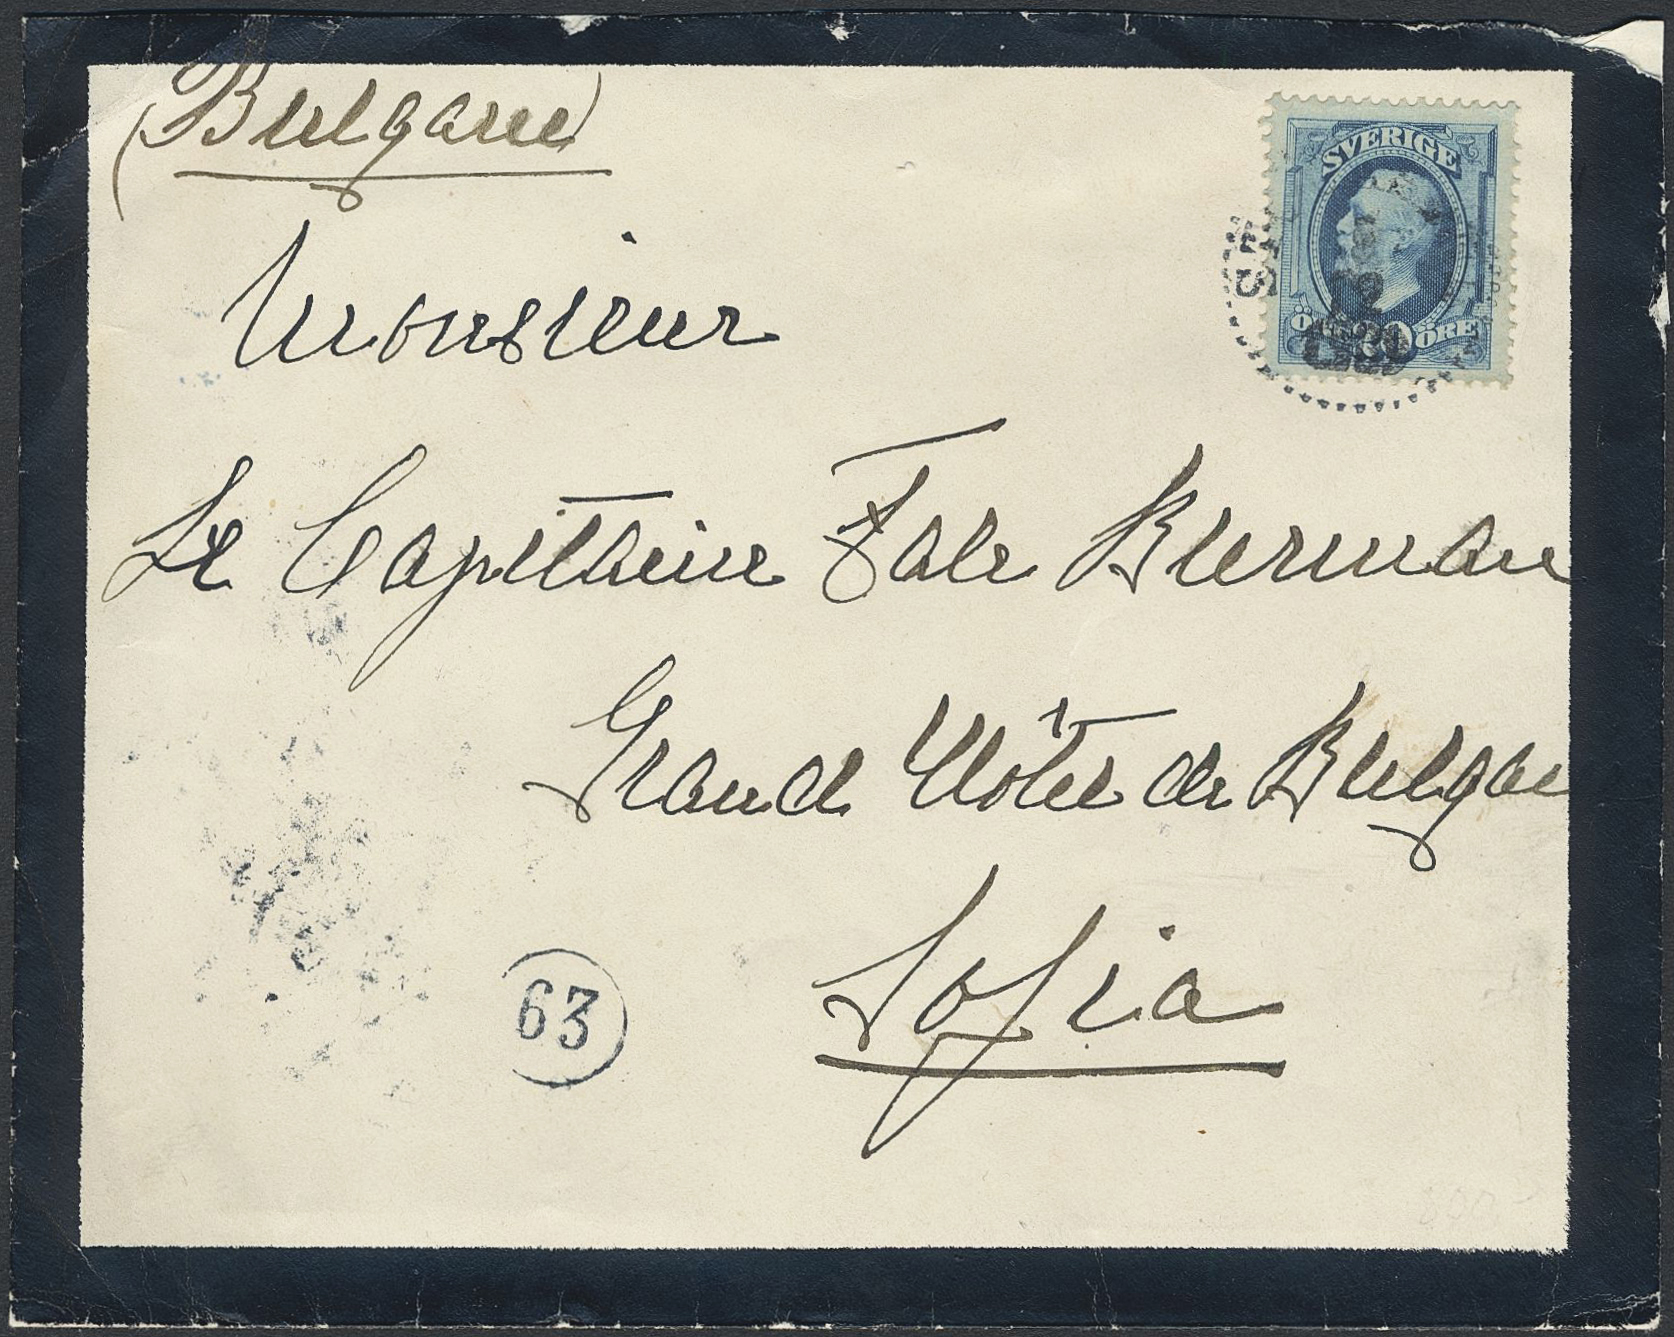 (Bulgarie)
SVERIGE
20
ÖRE
Monsieur
Le Capitaine Fale Burman
Grand Hôtel de Bulgarie
Sofia
63